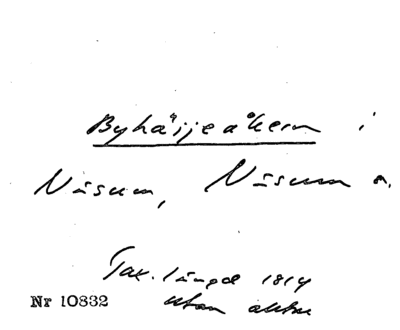 Byhäijeåkern i
Näsum, Näsum s.
Tax. längd 1814
utan aktnr
Nr 10832